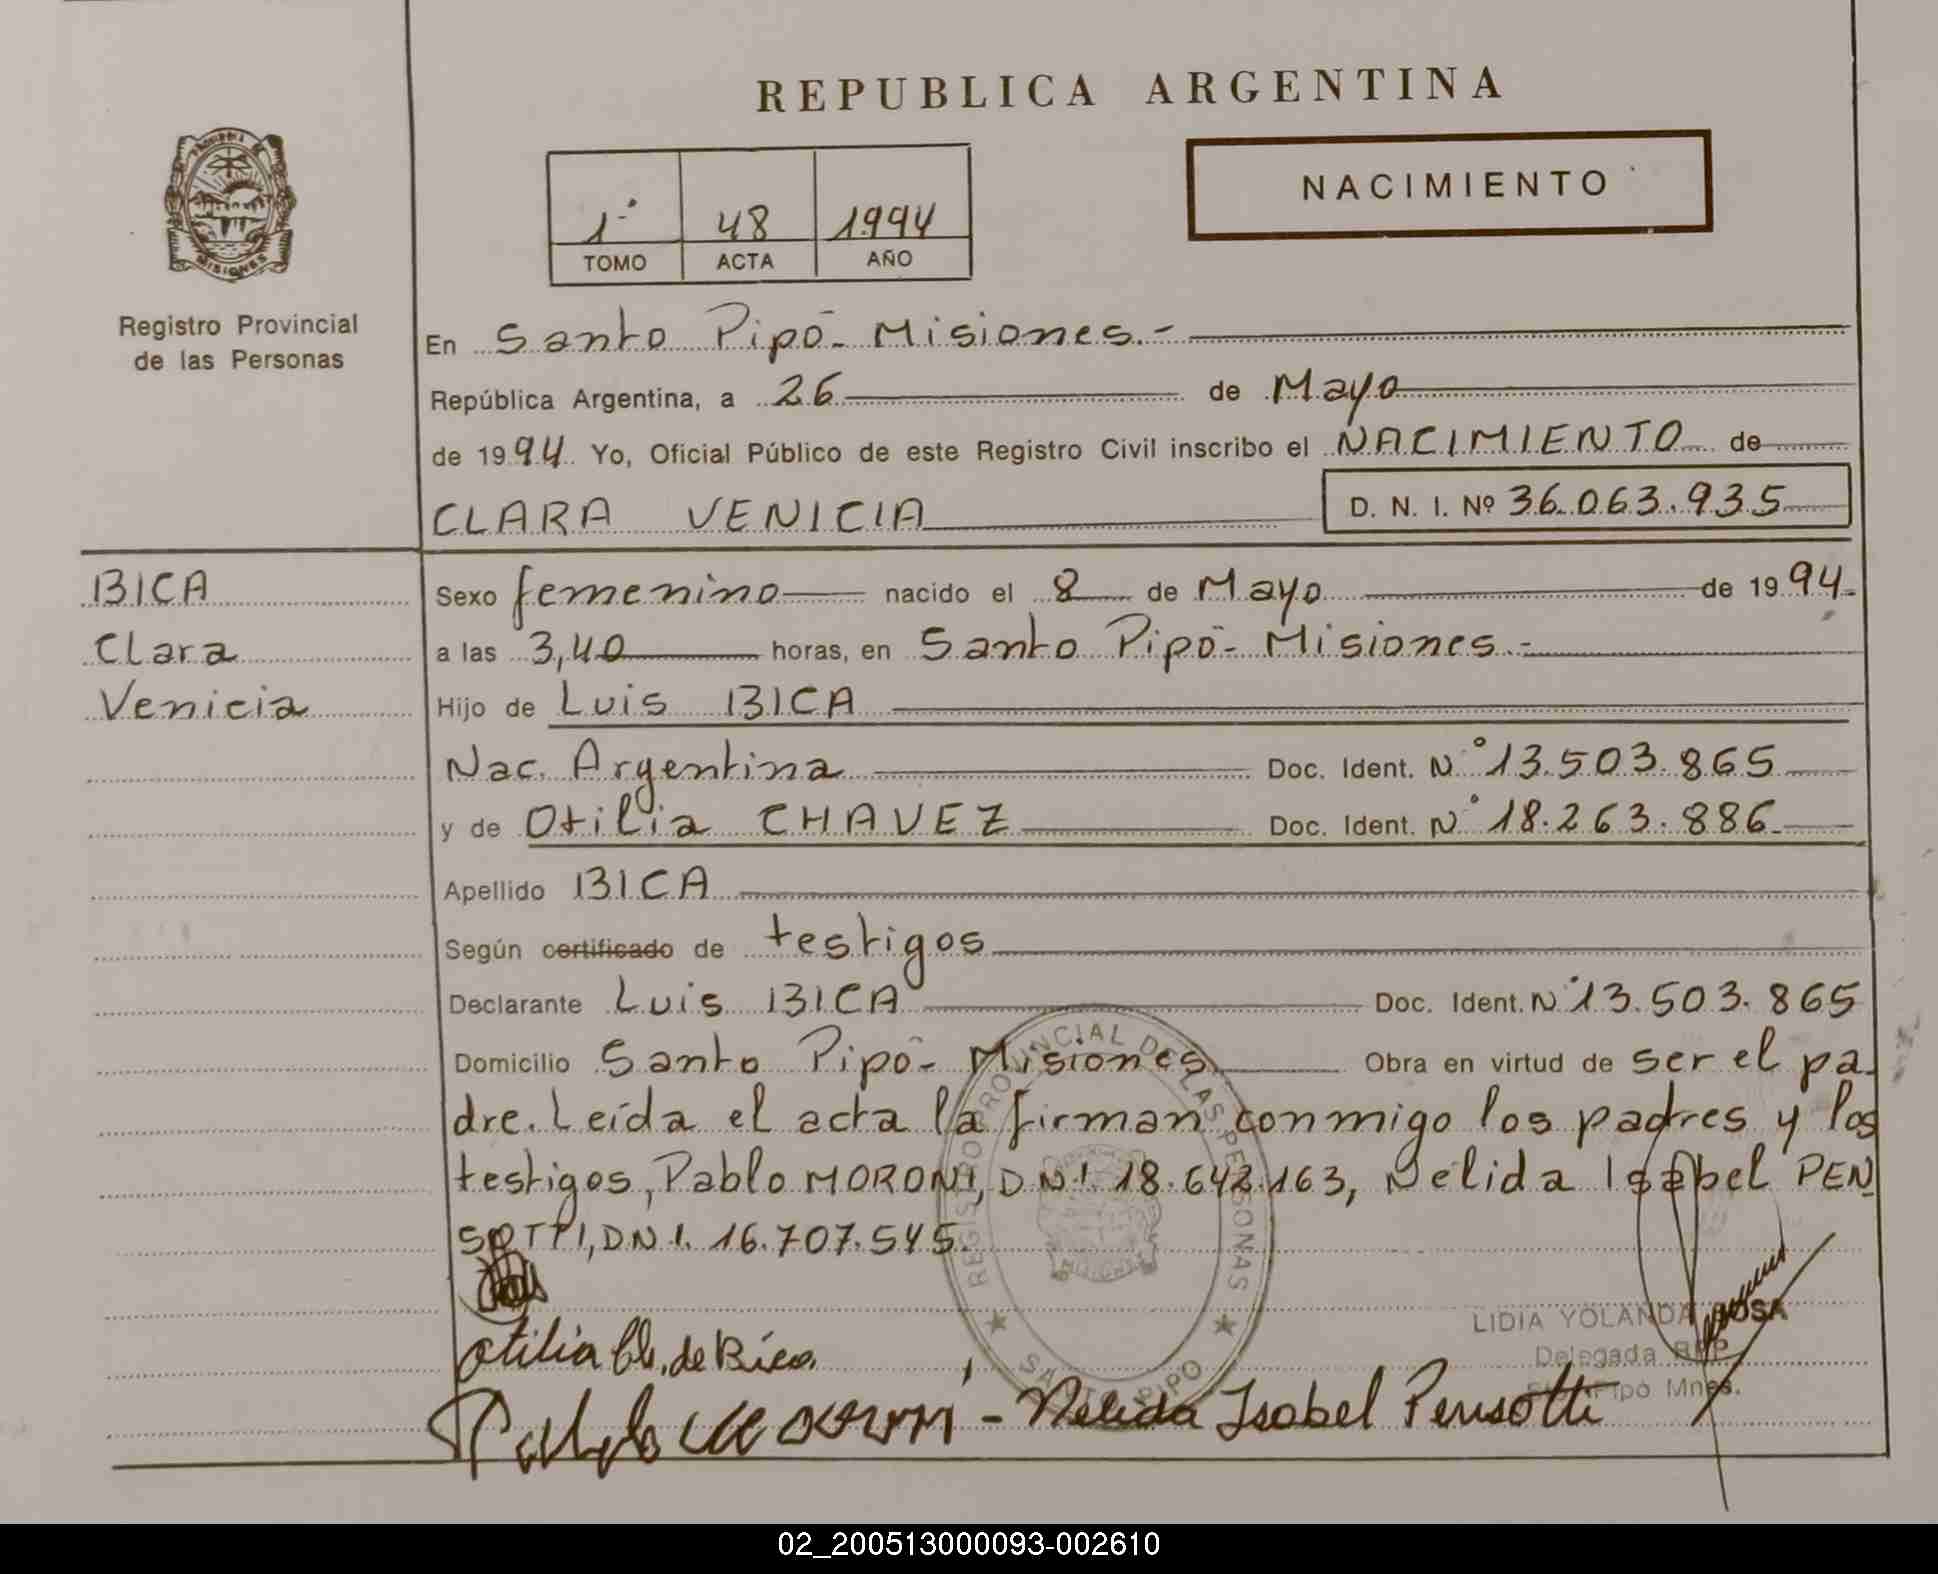 REPUBLICA ARGENTINA
NACIMIENTO
1º 48 1994
TOMO ACTA AÑO
PROVINCIA DE
MISIONES
Registro Provincial
de las Personas
En Santo Pipó - Misiones.-
República Argentina, a 26 de Mayo
de 1994. Yo, Oficial Público de este Registro Civil inscribo el NACIMIENTO de
CLARA VENICIA D. N. I. Nº 36.063.935
BICA
Clara
Venicia
Sexo femenino nacido el 8 de Mayo de 1994.
a las 3,40 horas, en Santo Pipó - Misiones.-
Hijo de Luis BICA
Nac. Argentina Doc. Ident. Nº 13.503.865
y de Otilia CHAVEZ Doc. Ident. Nº 18.263.886
Apellido BICA
Según certificado de testigos
Declarante Luis BICA Doc. Ident. Nº 13.503.865
Domicilio Santo Pipó - Misiones Obra en virtud de ser el pa-
dre. Leída el acta la firman conmigo los padres y los
testigos, Pablo MORONI, D.N.I. 18.642.163, Nelida Isabel PEN
SOTTI, D.N.I. 16.707.545.
REGISTRO PROVINCIAL DE LAS PERSONAS
SANTO PIPO
LIDIA YOLANDA SOSA
Delegada RPP
Sto. Pipó Mnes.
Otilia Ch. de Bica
Pablo Moroni - Nelida Isabel Pensotti
02_200513000093-002610